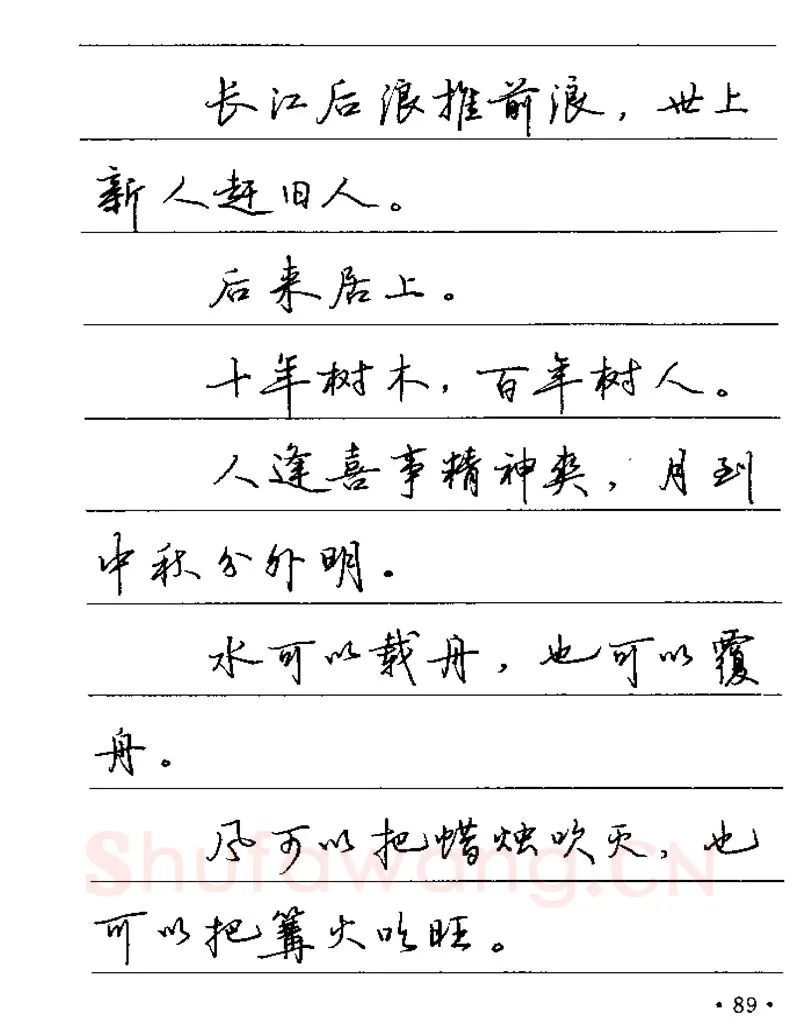 长江后浪推前浪，世上
新人赶旧人。
后来居上。
十年树木，百年树人。
人逢喜事精神爽，月到
中秋分外明。
水可以载舟，也可以覆
舟。
风可以把蜡烛吹灭，也
Shufawang.CN
可以把篝火吹旺。
·89·